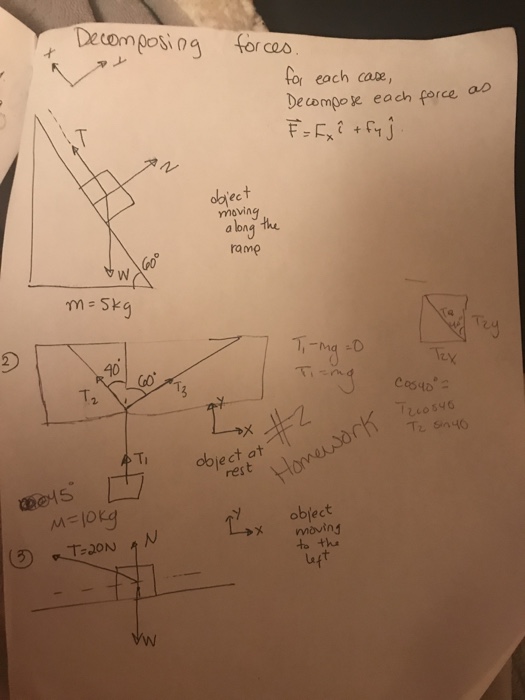 Decomposing forces.
x
y
for each case,
Decompose each force as
F = Fx î + Fy ĵ.
T
N
object
moving
along the
ramp
W
60°
m = 5kg
2
40°
60°
T2
T3
T1 - mg = 0
T1 = mg
T2y
T2x
cos40° =
T2 cos40
T2 sin40
y
x
#2
Homework
T1
object at
rest
45°
M = 10kg
y
x
object
moving
to the
left
3
T = 20N
N
W